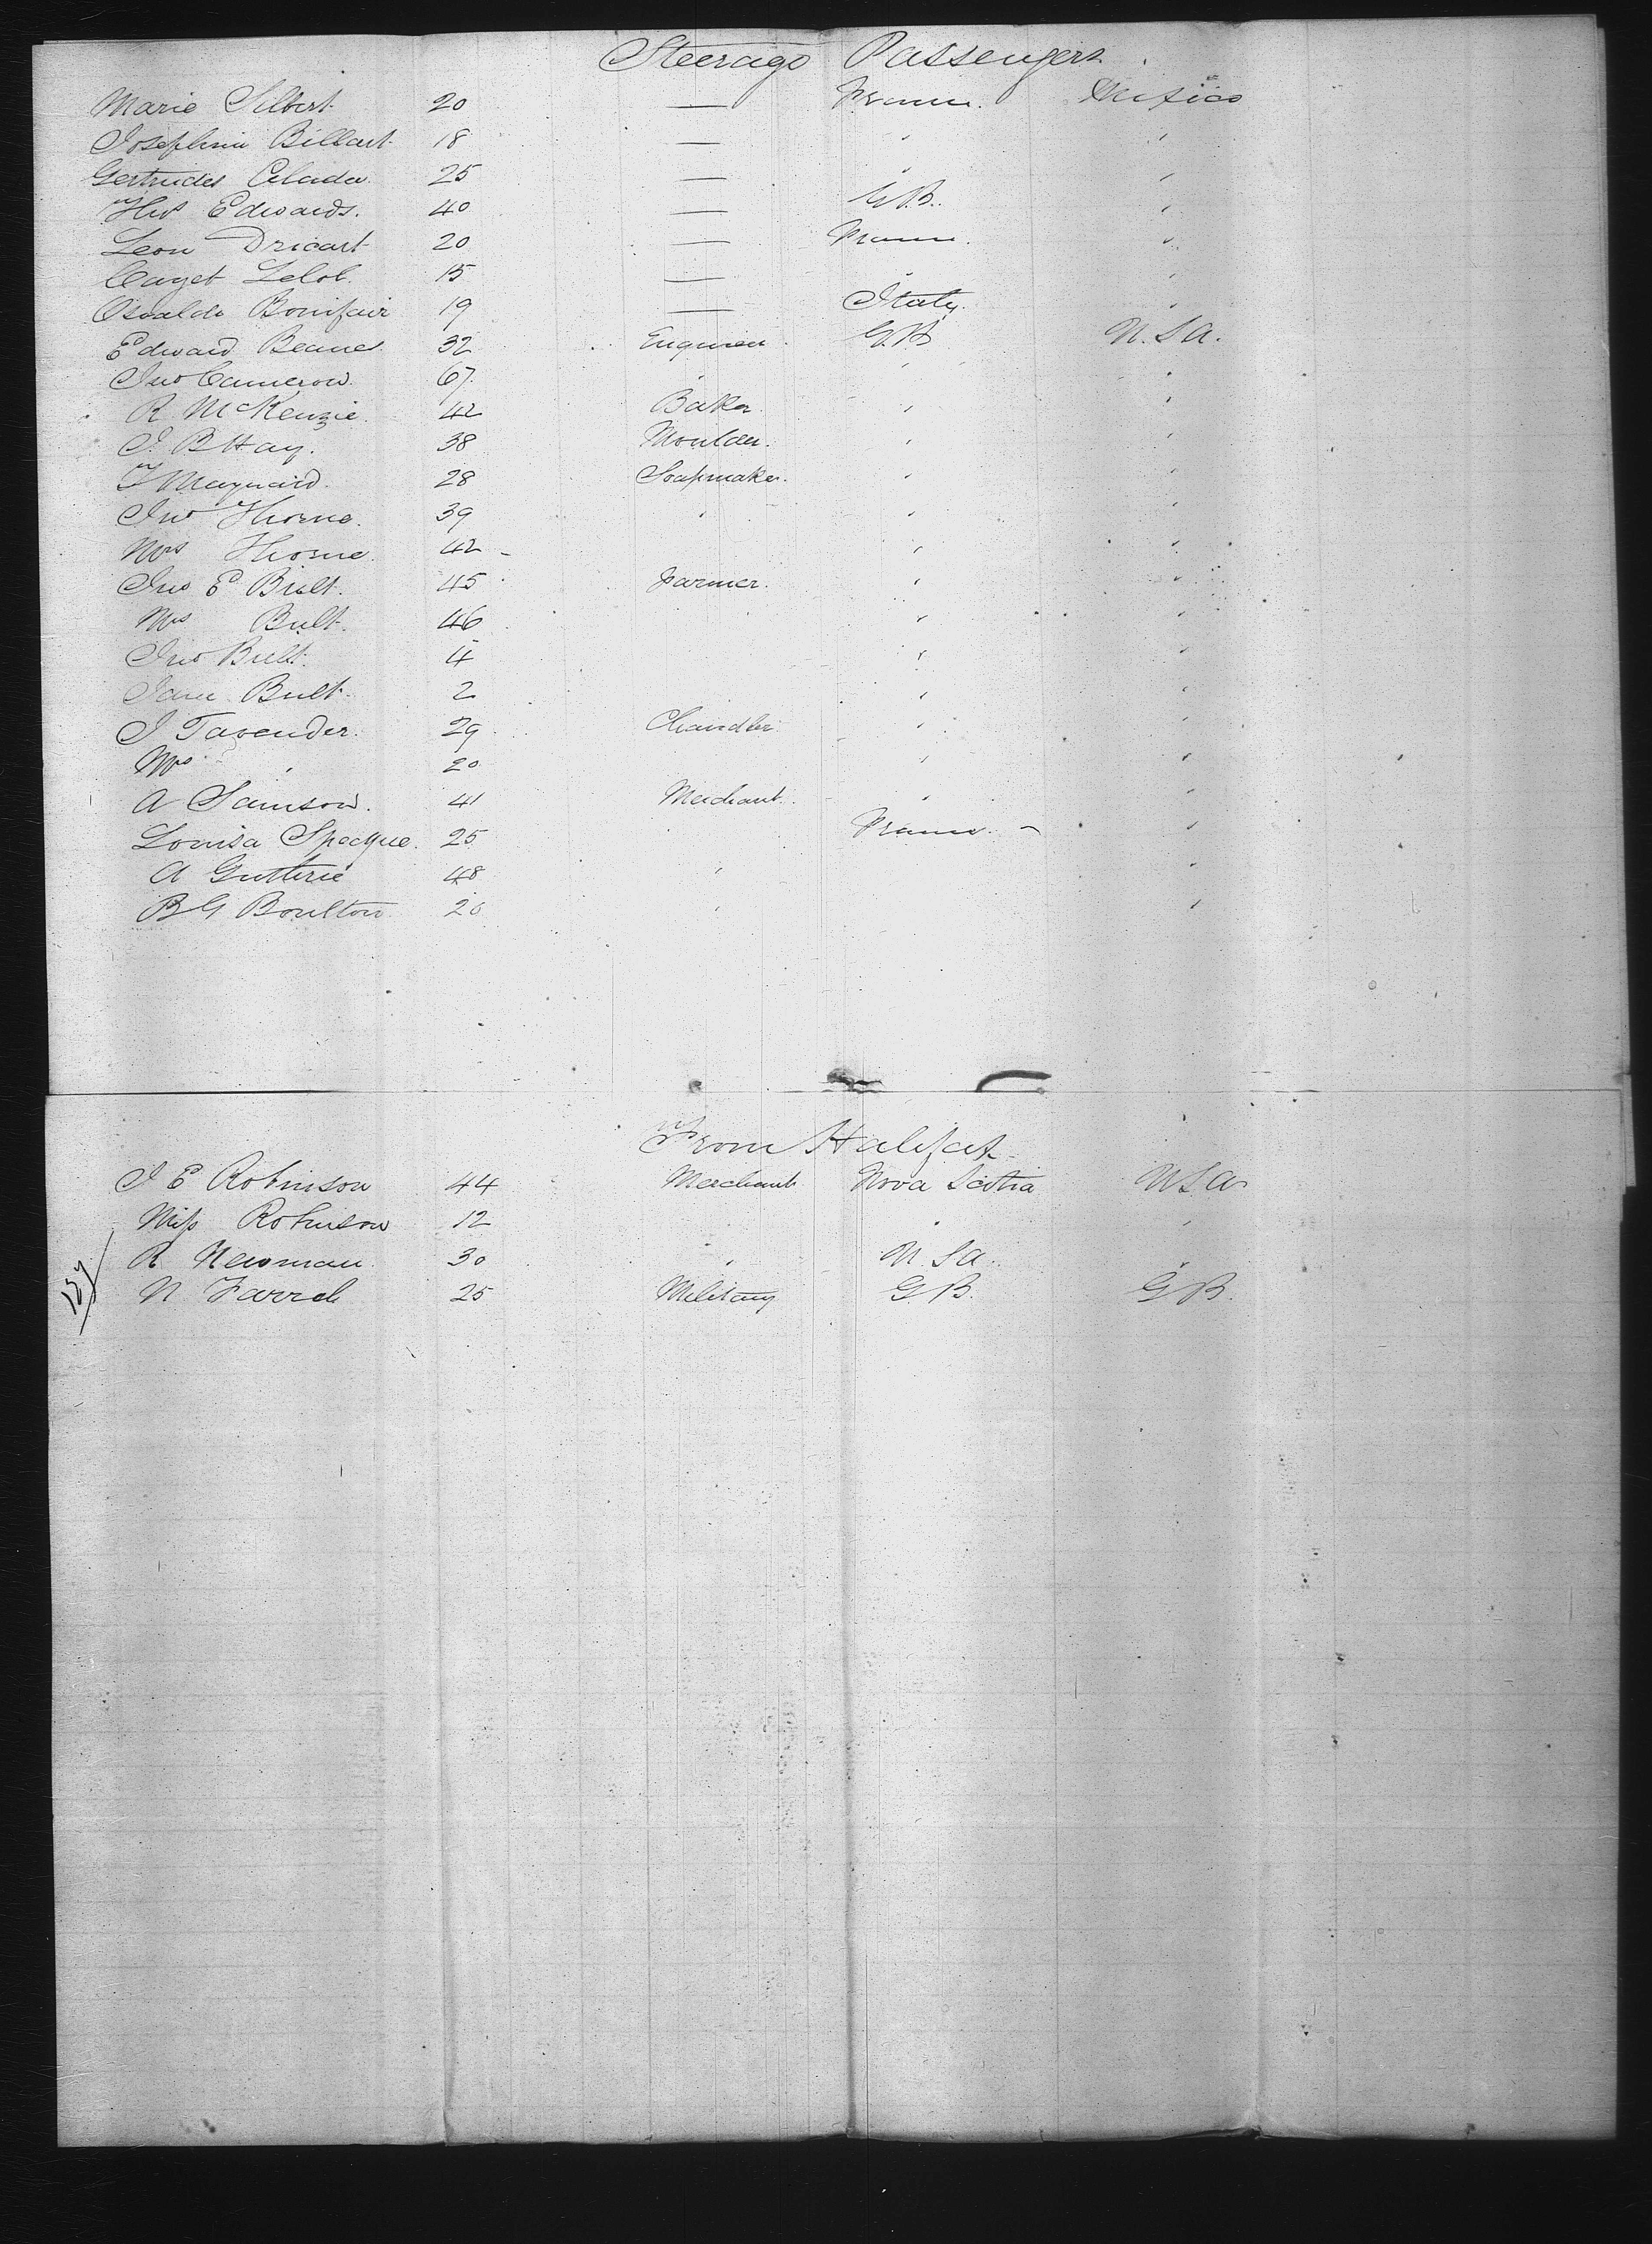 Steerage Passengers
Marie Silbert 20 — France. Mexico
Josephine Billart 18 — " "
Gertrudes Celada 25 — " "
Thos Edwards. 40 — G.B. "
Leon Dricart 20 — France. "
15 — " "
Osvaldo Bonifair 19 — Italy. "
Edward Beanes 32 Engineer G.B U.S.A.
Jno Cameron. 67. " " "
R McKenzie. 42 Baker. " "
J. B Hay. 38 Moulder. " "
T Maynard. 28 Soapmaker. " "
Jno Thorne. 39 " " "
Mrs Thorne. 42 " "
Jno E Bult. 45 Farmer. " "
Mrs Bult. 46 " "
Jno Bult. 4 " "
Jane Bult. 2 " "
J Tavender. 29 Chandler " "
Mrs " 20 " "
A Samson. 41 Merchant. " "
Louisa Specque. 25 France. "
A Guthrie 48 " "
B G Boulton 20 " "
From Halifax
J E Robinson 44 Merchant Nova Scotia U S A
Miss Robinson 12 " "
R Newman 30 " U.S.A. "
N Farrel 25 Military G.B. G B.